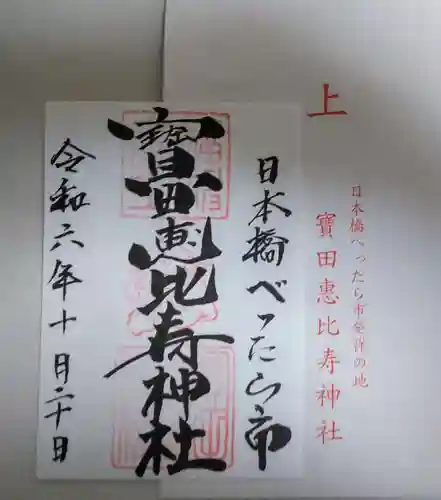 上
日本橋べったら市発祥の地
寳田恵比寿神社
日本橋べったら市
寳田恵比寿神社
令和六年十月二十日